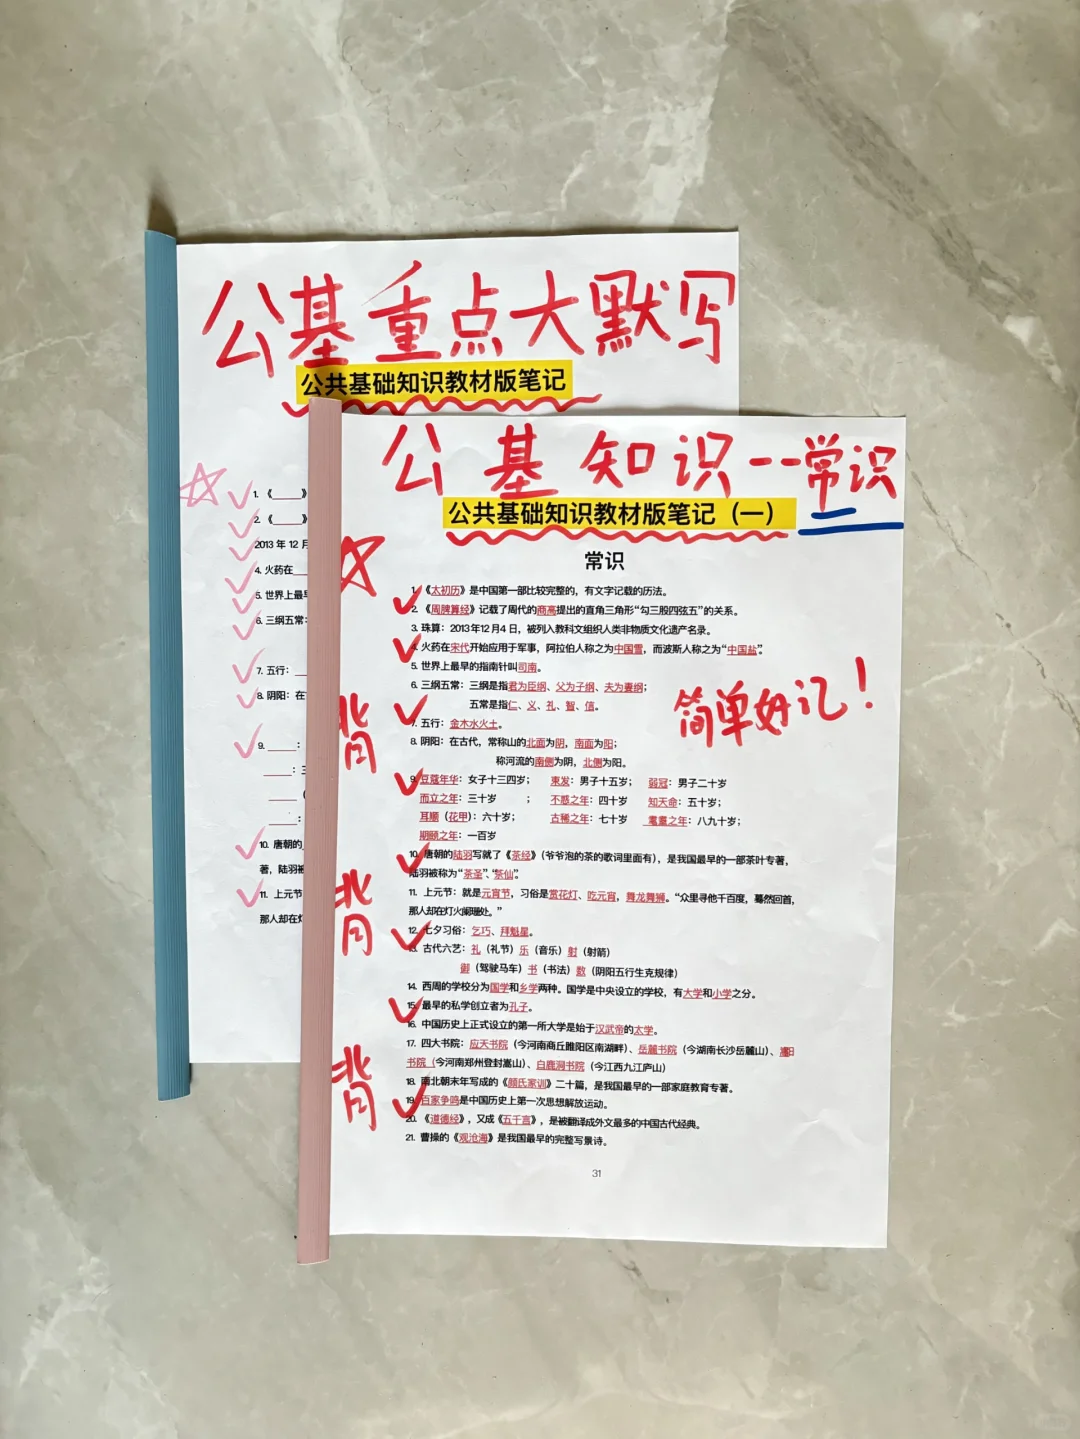 公基重点大默写
公共基础知识教材版笔记
1. 《____》
2. 《____》
2013 年 12 月
4. 火药在
5. 世界上最早
6. 三纲五常：
7. 五行：
8. 阴阳：在
9. ____：
____：三
____（
____：
10. 唐朝的
著，陆羽被
11. 上元节
那人却在灯
公基知识--常识
公共基础知识教材版笔记（一）
常识
1. 《太初历》是中国第一部比较完整的，有文字记载的历法。
2. 《周脾算经》记载了周代的商高提出的直角三角形“勾三股四弦五”的关系。
3. 珠算：2013年12月4日，被列入教科文组织人类非物质文化遗产名录。
4. 火药在宋代开始应用于军事，阿拉伯人称之为中国雪，而波斯人称之为“中国盐”。
5. 世界上最早的指南针叫司南。
6. 三纲五常：三纲是指君为臣纲、父为子纲、夫为妻纲；
五常是指仁、义、礼、智、信。
简单好记！
背
7. 五行：金木水火土。
8. 阴阳：在古代，常称山的北面为阴，南面为阳；
称河流的南侧为阴，北侧为阳。
9. 豆蔻年华：女子十三四岁； 束发：男子十五岁； 弱冠：男子二十岁
而立之年：三十岁 ； 不惑之年：四十岁 知天命：五十岁；
耳顺（花甲）：六十岁； 古稀之年：七十岁 耄耋之年：八九十岁；
期颐之年：一百岁
10. 唐朝的陆羽写就了《茶经》（爷爷泡的茶的歌词里面有），是我国最早的一部茶叶专著，
陆羽被称为“茶圣”、“茶仙”。
背
11. 上元节：就是元宵节，习俗是赏花灯、吃元宵，舞龙舞狮。“众里寻他千百度，蓦然回首，
那人却在灯火阑珊处。”
12. 七夕习俗：乞巧、拜魁星。
13. 古代六艺：礼（礼节）乐（音乐）射（射箭）
御（驾驶马车）书（书法）数（阴阳五行生克规律）
14. 西周的学校分为国学和乡学两种。国学是中央设立的学校，有大学和小学之分。
15. 最早的私学创立者为孔子。
16. 中国历史上正式设立的第一所大学是始于汉武帝的太学。
17. 四大书院：应天书院（今河南商丘睢阳区南湖畔）、岳麓书院（今湖南长沙岳麓山）、嵩阳
书院（今河南郑州登封嵩山）、白鹿洞书院（今江西九江庐山）
背
18. 南北朝末年写成的《颜氏家训》二十篇，是我国最早的一部家庭教育专著。
19. 百家争鸣是中国历史上第一次思想解放运动。
20. 《道德经》，又成《五千言》，是被翻译成外文最多的中国古代经典。
21. 曹操的《观沧海》是我国最早的完整写景诗。
31